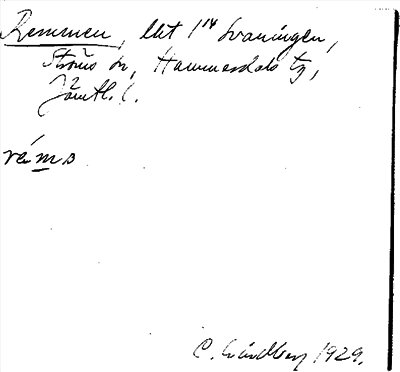 Remmen, lht 1¹⁴ Svaningen,
Ströms sn, Hammerdals tg,
Jämtl. l.
rém̲ɒ
C. Lindberg 1929.